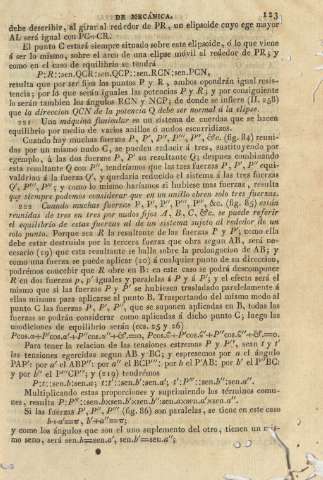 DE MECÁNICA. 123
debe describir, al girar al rededor de PR, un elipsoide cuyo ege mayor
AL será igual con PC+CR.
El punto C estará siempre situado sobre este elipsoide, ó lo que viene
á ser lo mismo, sobre el arco de una elipse móvil al rededor de PR; y
como en el caso de equilibrio se tendrá
P:R::sen.QCR:sen.QCP::sen.RCN:sen.PCN,
resulta que por ser fijos los puntos P y R, ambos opondrán igual resis-
tencia; por lo que serán iguales las potencias P y R; y por consiguiente
lo serán tambien los ángulos RCN y NCP; de donde se infiere (II. 258)
que la direccion QCN de la potencia Q debe ser normal á la elipse.
221 Una máquina funicular es un sistema de cuerdas que se hacen
equilibrio por medio de varios anillos ó nudos escurridizos.
Cuando hay muchas fuerzas P, P', P'', P''', P'''', &c. (fig. 84) reuni-
das por un mismo nudo C, se pueden reducir á tres, sustituyendo por
egemplo, á las dos fuerzas P, P' su resultante Q; despues combinando
esta resultante Q con P'', tendríamos que las tres fuerzas P, P', P'' equi-
valdrian á la fuerza Q', y quedaria reducido el sistema á las tres fuerzas
Q', P''', P''''; y como lo mismo hariamos si hubiese mas fuerzas, resulta
que siempre podemos considerar que en un anillo obren solo tres fuerzas.
222 Cuando muchas fuerzas P, P', P'', P''', &c. (fig. 85) están
reunidas de tres en tres por nudos fijos A, B, C, &c. se puede referir
el equilibrio de estas fuerzas al de un sistema sujeto al rededor de un
solo punto. Porque sea R la resultante de las fuerzas P y P'; como ella
debe estar destruida por la tercera fuerza que obra segun AB, será ne-
cesario (19) que esta resultante se halle sobre la prolongacion de AB; y
como una fuerza se puede aplicar (20) á cualquier punto de su direccion,
podrémos concebir que R obre en B: en este caso se podrá descomponer
R en dos fuerzas p, p' iguales y paralelas á P y á P'; y el efecto será el
mismo que si las fuerzas P y P' se hubiesen trasladado paralelamente á
ellas mismas para aplicarse al punto B. Trasportando del mismo modo al
punto C las fuerzas P, P', P'', que se suponen aplicadas en B, todas las
fuerzas se podrán considerar como aplicadas á dicho punto C; luego las
condiciones de equilibrio serán (ecs. 25 y 26)
Para tener la relacion de las tensiones estremas P y P''', sean t y t'
las tensiones egercidas segun AB y BC; y espresemos por a el ángulo
PAP': por a' el ABP'': por a'' el BCP''': por b el P'AB; por b' el P''BC
y por b'' el P''''CP'''; y (119) tendrémos
P:t::sen.b:sen.a; t:t'::sen.b':sen.a'; t':P'''::sen.b'':sen.a''.
Multiplicando estas proporciones y suprimiendo los términos comu-
nes, resulta P:P'''::sen.b×sen.b'×sen.b'':sen.a×sen.a'×sen.a''.
Si las fuerzas P', P'', P''' (fig. 86) son paralelas, se tiene en este caso
b+a'=π, b'+a''=π;
y como los ángulos que son el uno suplemento del otro, tienen un mis-
mo seno, será sen.b=sen.a', sen.b'=sen.a'';